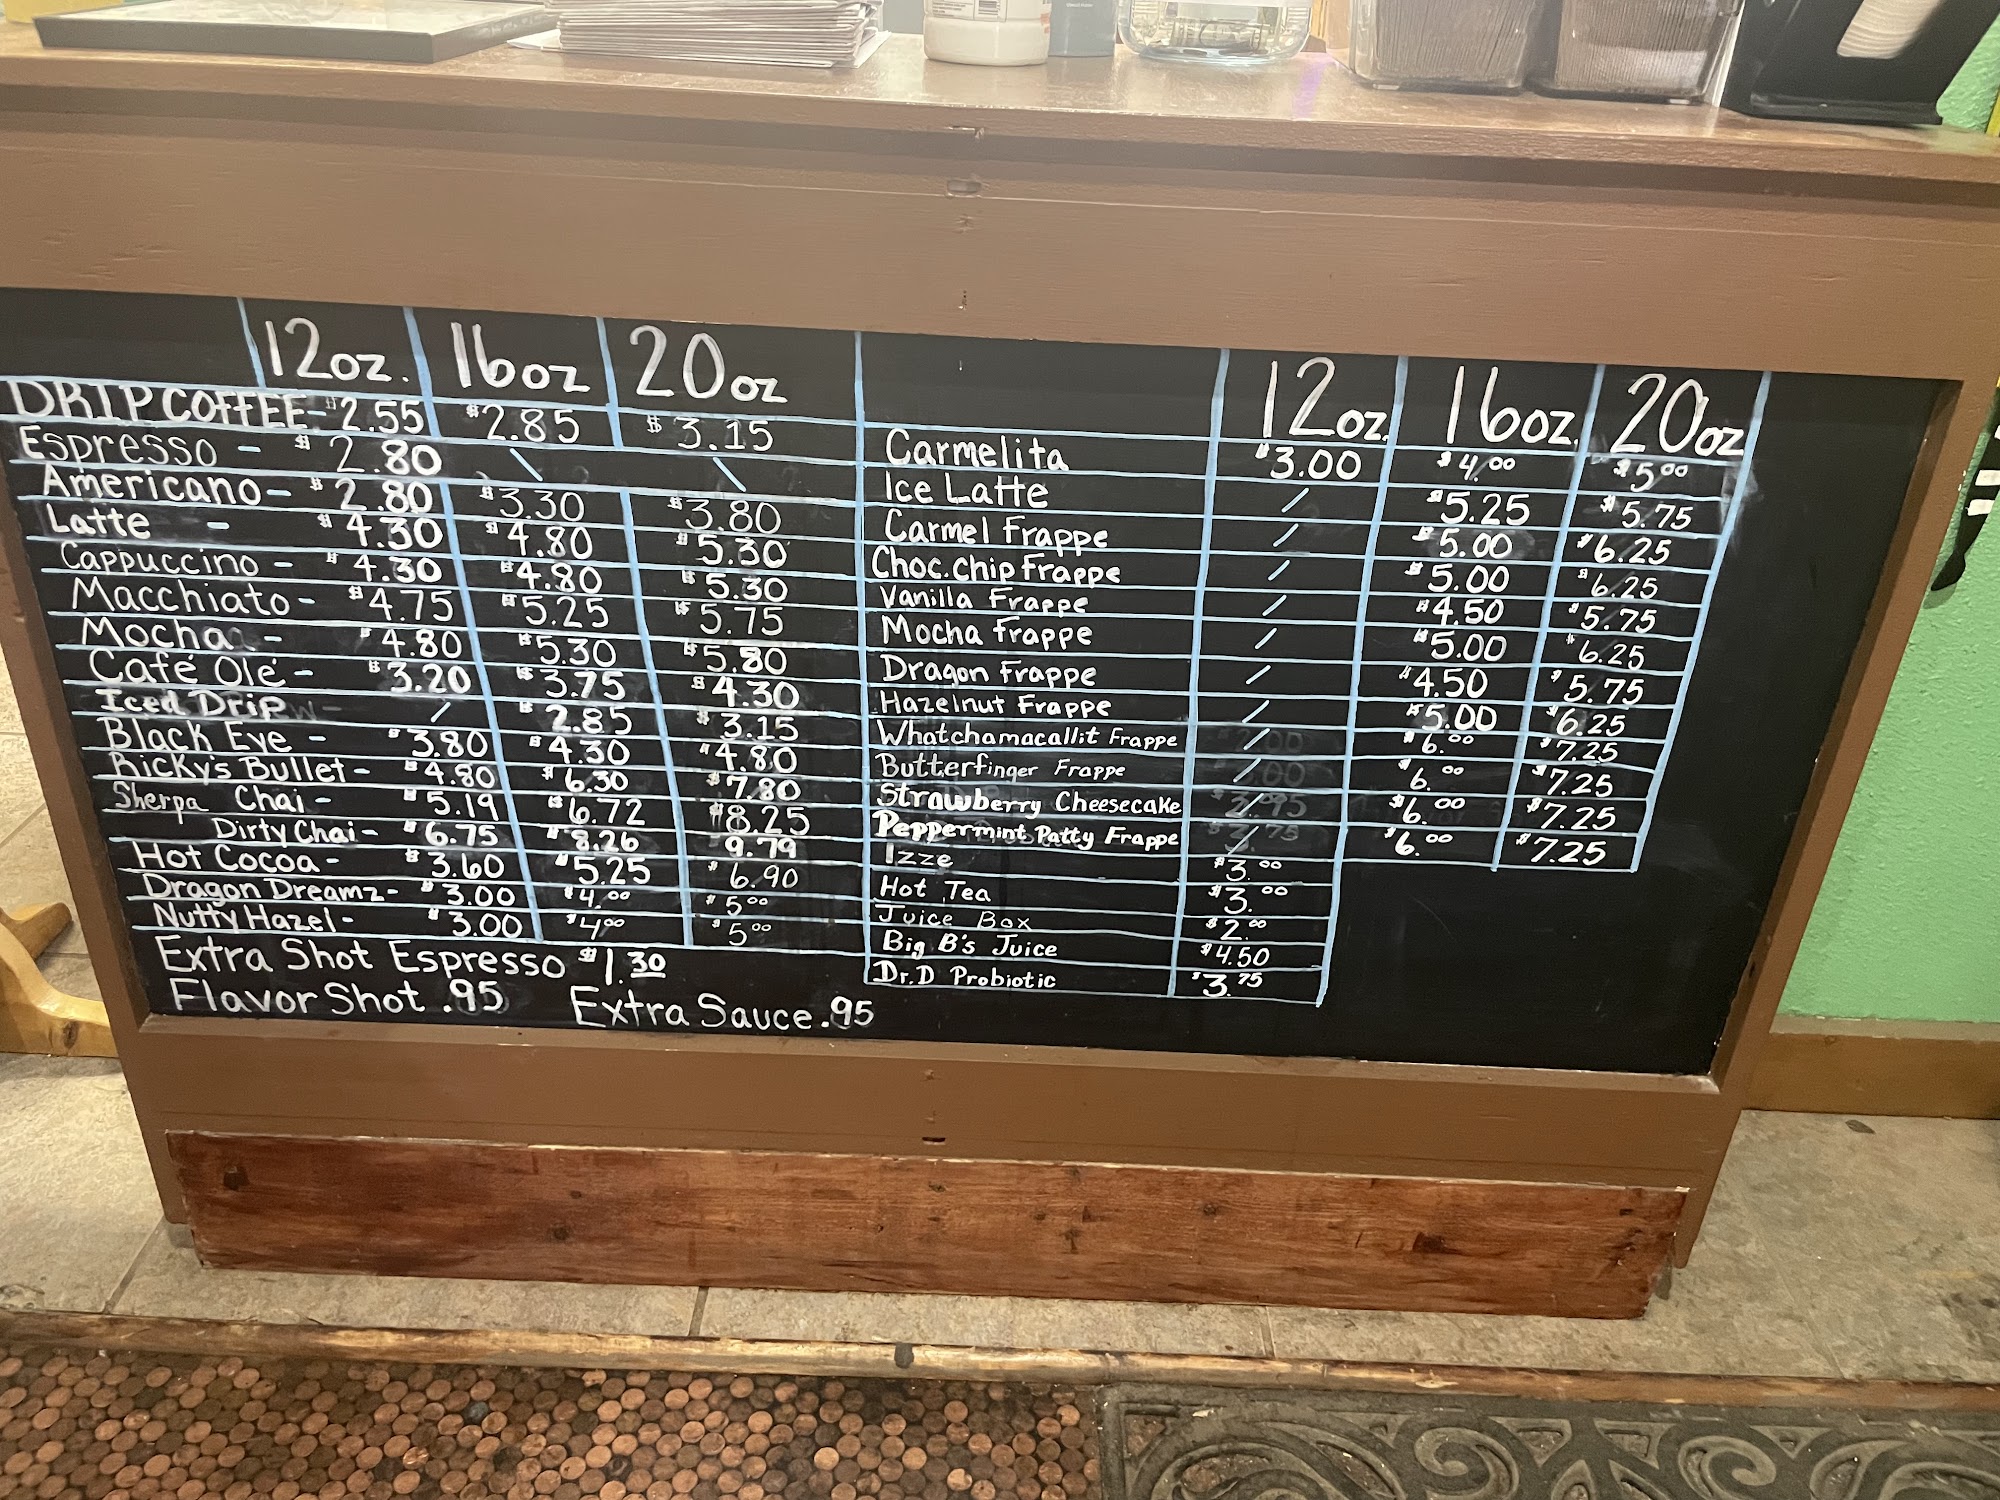 12oz. 16oz 20oz
DRIP COFFEE- $2.55 $2.85 $3.15
Espresso - $2.80 \ \
Americano- $2.80 $3.30 $3.80
Latte - $4.30 $4.80 $5.30
Cappuccino - $4.30 $4.80 $5.30
Macchiato- $4.75 $5.25 $5.75
Mocha - $4.80 $5.30 $5.80
Café Olé - $3.20 $3.75 $4.30
Iced Drip - / $2.85 $3.15
Black Eye - $3.80 $4.30 $4.80
Ricky's Bullet- $4.80 $6.30 $7.80
Sherpa Chai- $5.19 $6.72 $8.25
Dirty Chai- $6.75 $8.26 9.79
Hot Cocoa- $3.60 $5.25 $6.90
Dragon Dreamz- $3.00 $4.00 $5.00
Nutty Hazel- $3.00 $4.00 $5.00
Extra Shot Espresso $1.30
Flavor Shot .95 Extra Sauce .95
12oz. 16oz. 20oz
Carmelita $3.00 $4.00 $5.00
Ice Latte / $5.25 $5.75
Carmel Frappe / $5.00 $6.25
Choc.chip Frappe / $5.00 $6.25
Vanilla Frappe / $4.50 $5.75
Mocha Frappe / $5.00 $6.25
Dragon Frappe / $4.50 $5.75
Hazelnut Frappe / $5.00 $6.25
Whatchamacallit Frappe / $6.00 $7.25
Butterfinger Frappe / $6.00 $7.25
Strawberry Cheesecake / $6.00 $7.25
Peppermint Patty Frappe / $6.00 $7.25
Izze $3.00
Hot Tea $3.00
Juice Box $2.00
Big B's Juice $4.50
Dr.D Probiotic $3.75